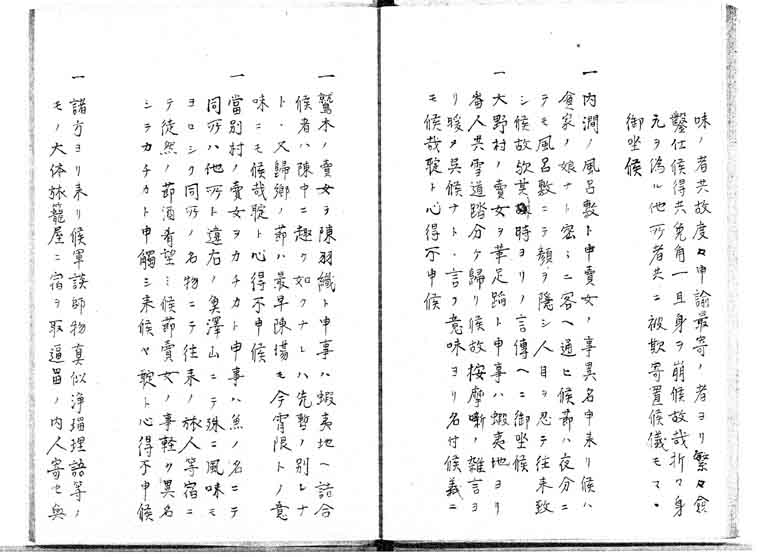 味ノ者共故度々申諭最寄ノ者ヨリ繁々食
鑿仕候得共兎角一旦身ヲ崩候故哉折々身
元ヲ偽ル他所者共ニ被欺寄置候儀モマヽ
御坐候
一内澗ノ風呂敷ト申賣女ノ事異名申来リ候ハ
貧家ノ娘ナト密ミニ客ヘ通ヒ候節ハ夜分ニ
テモ風呂敷ニテ顔ヲ隠シ人目ヲ忍テ往来致
シ候故欤其時ヨリノ言傳ヘニ御坐候
一大野村ノ賣女ヲ華足踊ト申事ハ蝦夷地ヨリ
番人共雪道踏分ケ歸リ候故按摩噺ノ雑言ヨ
リ暖メ呉候ナト言フ意味ヨリ名付候義ニ
モ候哉聢ト心得不申候
一鷲木ノ賣女ヲ陳羽織ト申事ハ蝦夷地ヘ詰合
候者ハ陳中ニ趣ク如クナレハ先暫ノ別レナ
ト又歸郷ノ節ハ最早陳場モ今宵限トノ意
味ニモ候哉聢ト心得不申候
一當別村ノ賣女ヲカチカト申事ハ魚ノ名ニテ
同所ハ他所ト違右ノ魚澤山ニテ殊ニ風味モ
ヨロシク同所ノ名物ニテ往来ノ旅人等宿ニ
テ徒然ノ節酒肴望ミ候節賣女ノ事軽ク異名
シテカチカト申觸ミ来候ヤ聢ト心得不申候
一諸方ヨリ来リ候軍談師物真似浄瑠理語等ノ
モノ大体旅籠屋ニ宿ヲ取逗留ノ内人寄セ與